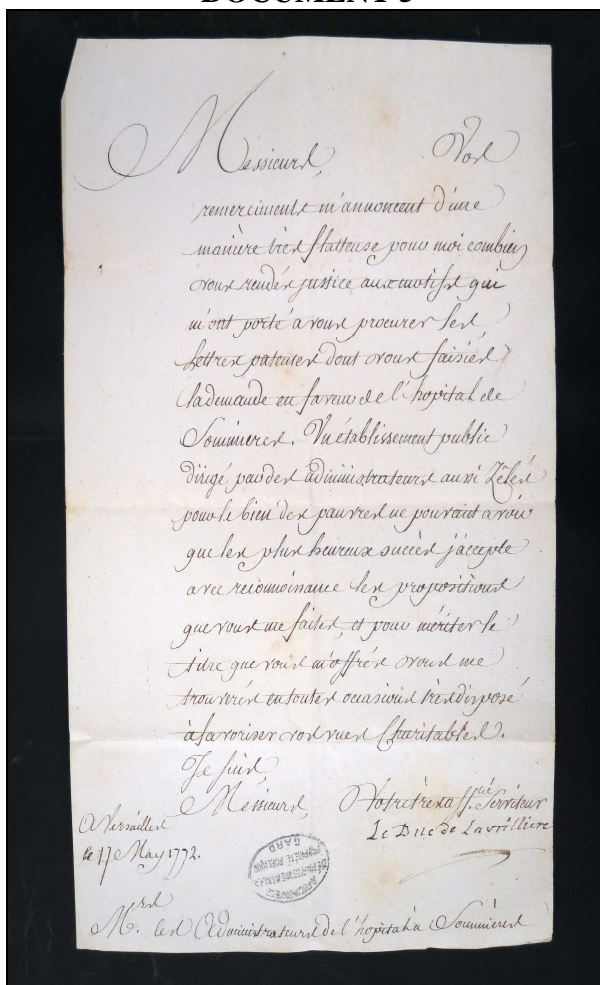 DOCUMENT 3
Messieurs, Vos
remerciments m'annoncent d'une
maniere tres flatteuse pour moi combien
vous rendés justice aux motifs qui
m'ont porté a vous procurer les
lettres patentes dont vous faisiés
la demande en faveur de l'hopital de
Sommieres. Un établissement public
dirigé par des administrateurs aussi Zélés
pour le bien des pauvres ne pouvant avoir
que les plus heureux succès j'accepte
avec reconnoissance les propositions
que vous me faites, et pour mériter le
titre que vous m'offrés vous me
trouverés en toutes occasions tres disposé
à favoriser vos vues Charitables.
Je suis
Messieurs, Votre tres aff.né Serviteur
Le Duc de Lavrilliere
A Versailles
le 17 May 1772.
ARCHIVES
DÉPARTEMENTALES
PROPRIÉTÉ PUBLIQUE
GARD
M.rs les Administrateurs de l'hopital a Sommieres